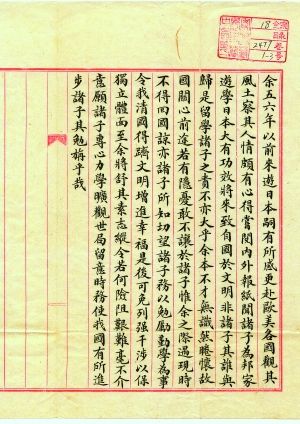 余五六年以前来遊日本嗣有所感更赴歐美各國觀其
風土察其人情頗有心得嘗閱内外報紙聞諸子為邦家
遊學日本大有功效將來致自國於文明非諸子其誰與
歸是留學諸子之責不亦大乎余本不才無識然睠懷故
國關心前途若有隱憂敢不讓於諸子惟余之際遇現時
不得回國諒亦諸子所知切望諸子務以勉勵勤學為事
令我清國得躋文明增進幸福是後可免列强干渉以保
獨立體面至余將舒其素志縱令若何險阻艱難毫不介
意願諸子專心力學曠觀世局留意時務使我國有所進
步諸子其勉旃乎哉
18
2477
1-3